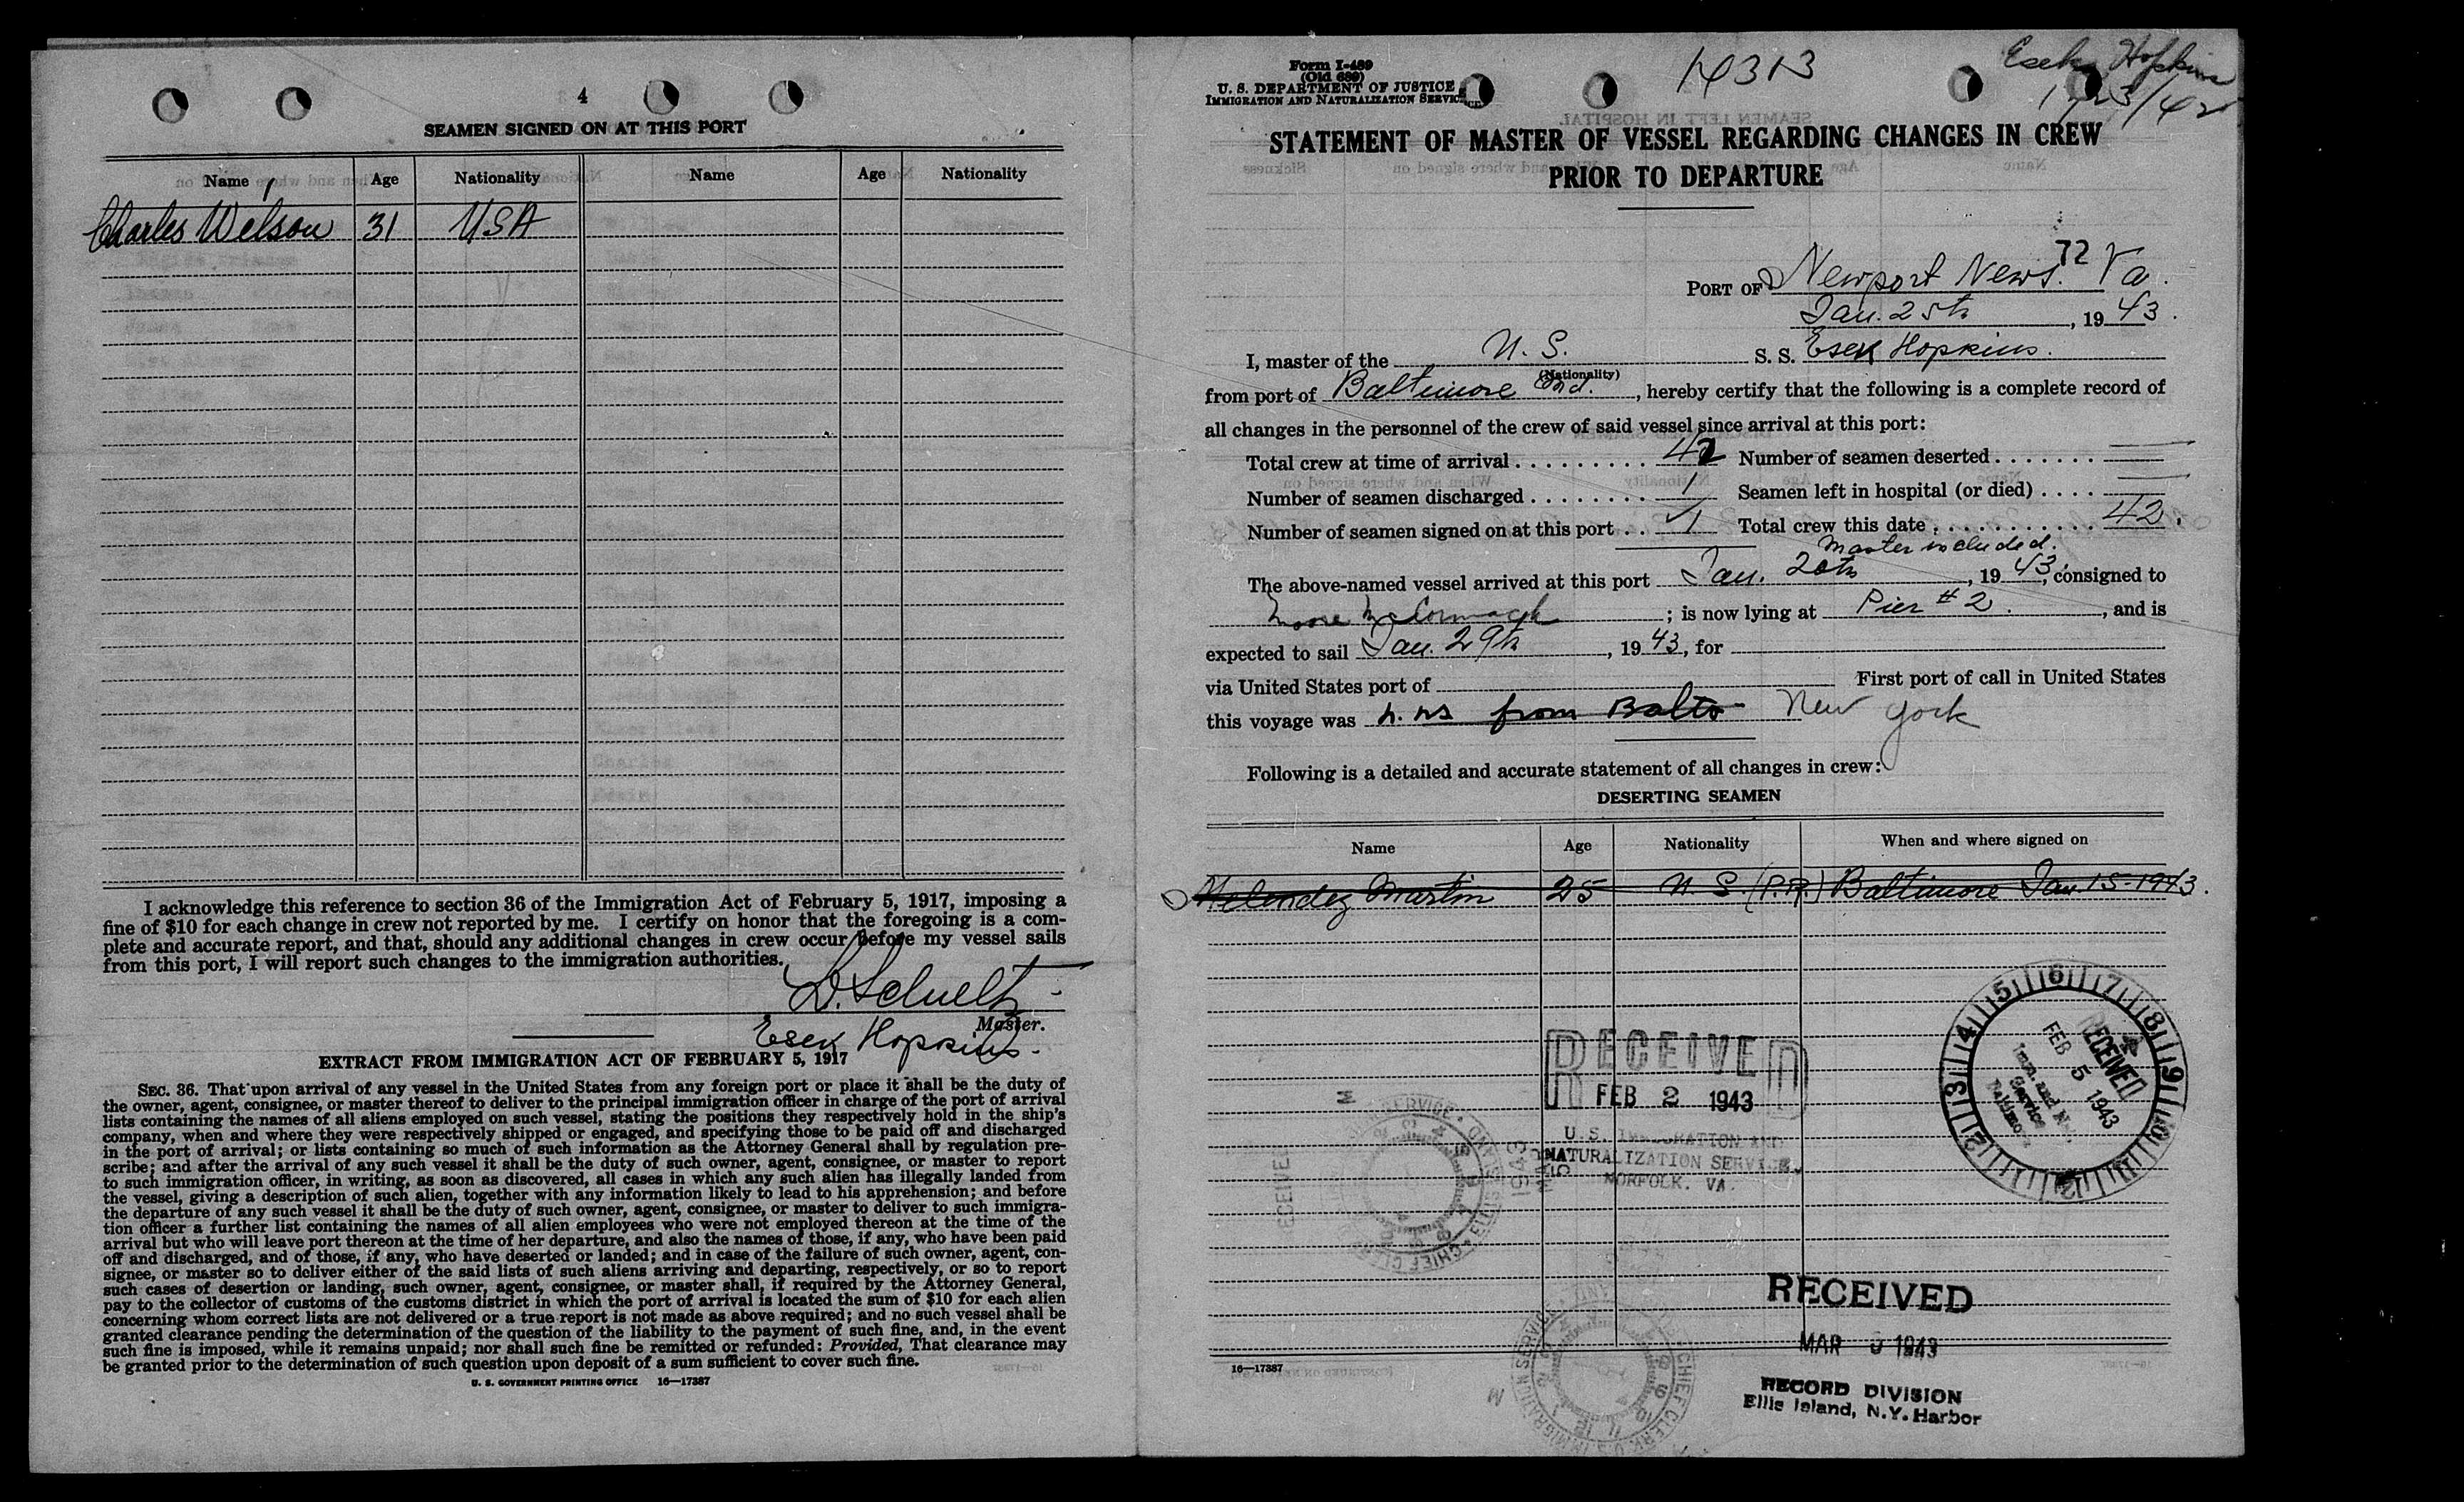 4
SEAMEN SIGNED ON AT THIS PORT
Name Age Nationality Name Age Nationality
Charles Welson 31 USA
I acknowledge this reference to section 36 of the Immigration Act of February 5, 1917, imposing a
fine of $10 for each change in crew not reported by me. I certify on honor that the foregoing is a com-
plete and accurate report, and that, should any additional changes in crew occur before my vessel sails
from this port, I will report such changes to the immigration authorities.
Master.
Esek Hopkins.
EXTRACT FROM IMMIGRATION ACT OF FEBRUARY 5, 1917
SEC. 36. That upon arrival of any vessel in the United States from any foreign port or place it shall be the duty of
the owner, agent, consignee, or master thereof to deliver to the principal immigration officer in charge of the port of arrival
lists containing the names of all aliens employed on such vessel, stating the positions they respectively hold in the ship's
company, when and where they were respectively shipped or engaged, and specifying those to be paid off and discharged
in the port of arrival; or lists containing so much of such information as the Attorney General shall by regulation pre-
scribe; and after the arrival of any such vessel it shall be the duty of such owner, agent, consignee, or master to report
to such immigration officer, in writing, as soon as discovered, all cases in which any such alien has illegally landed from
the vessel, giving a description of such alien, together with any information likely to lead to his apprehension; and before
the departure of any such vessel it shall be the duty of such owner, agent, consignee, or master to deliver to such immigra-
tion officer a further list containing the names of all alien employees who were not employed thereon at the time of the
arrival but who will leave port thereon at the time of her departure, and also the names of those, if any, who have been paid
off and discharged, and of those, if any, who have deserted or landed; and in case of the failure of such owner, agent, con-
signee, or master so to deliver either of the said lists of such aliens arriving and departing, respectively, or so to report
such cases of desertion or landing, such owner, agent, consignee, or master shall, if required by the Attorney General,
pay to the collector of customs of the customs district in which the port of arrival is located the sum of $10 for each alien
concerning whom correct lists are not delivered or a true report is not made as above required; and no such vessel shall be
granted clearance pending the determination of the question of the liability to the payment of such fine, and, in the event
such fine is imposed, while it remains unpaid; nor shall such fine be remitted or refunded: Provided, That clearance may
be granted prior to the determination of such question upon deposit of a sum sufficient to cover such fine.
U. S. GOVERNMENT PRINTING OFFICE 16—17387
Form I-489
(Old 689)
U. S. DEPARTMENT OF JUSTICE
IMMIGRATION AND NATURALIZATION SERVICE
14313
Esek Hopkins
STATEMENT OF MASTER OF VESSEL REGARDING CHANGES IN CREW
PRIOR TO DEPARTURE
72
PORT OF Newport News. Va.
Jan. 25th, 1943.
I, master of the U. S. S. S. Esek Hopkins.
(Nationality)
from port of Baltimore Md., hereby certify that the following is a complete record of
all changes in the personnel of the crew of said vessel since arrival at this port:
Total crew at time of arrival . . . . . . . . . 42 Number of seamen deserted . . . . . . . —
Number of seamen discharged . . . . . . . . 1 Seamen left in hospital (or died) . . . . —
Number of seamen signed on at this port . . 1 Total crew this date . . . . . . . . . . . 42.
Master included.
The above-named vessel arrived at this port Jan. 20th, 1943, consigned to
Moore McCormack; is now lying at Pier #2., and is
expected to sail Jan. 29th, 1943, for
via United States port of First port of call in United States
this voyage was from Balto New York
Following is a detailed and accurate statement of all changes in crew:
DESERTING SEAMEN
Name Age Nationality When and where signed on
Melendez Martin 25 U. S. (P.R.) Baltimore Jan. 15-1943.
RECEIVED
FEB 2 1943
U.S. IMMIGRATION AND
NATURALIZATION SERVICE
NORFOLK. VA.
RECEIVED
FEB 5 1943
RECEIVED
MAR 1943
RECORD DIVISION
Ellis Island, N.Y. Harbor
16—17387